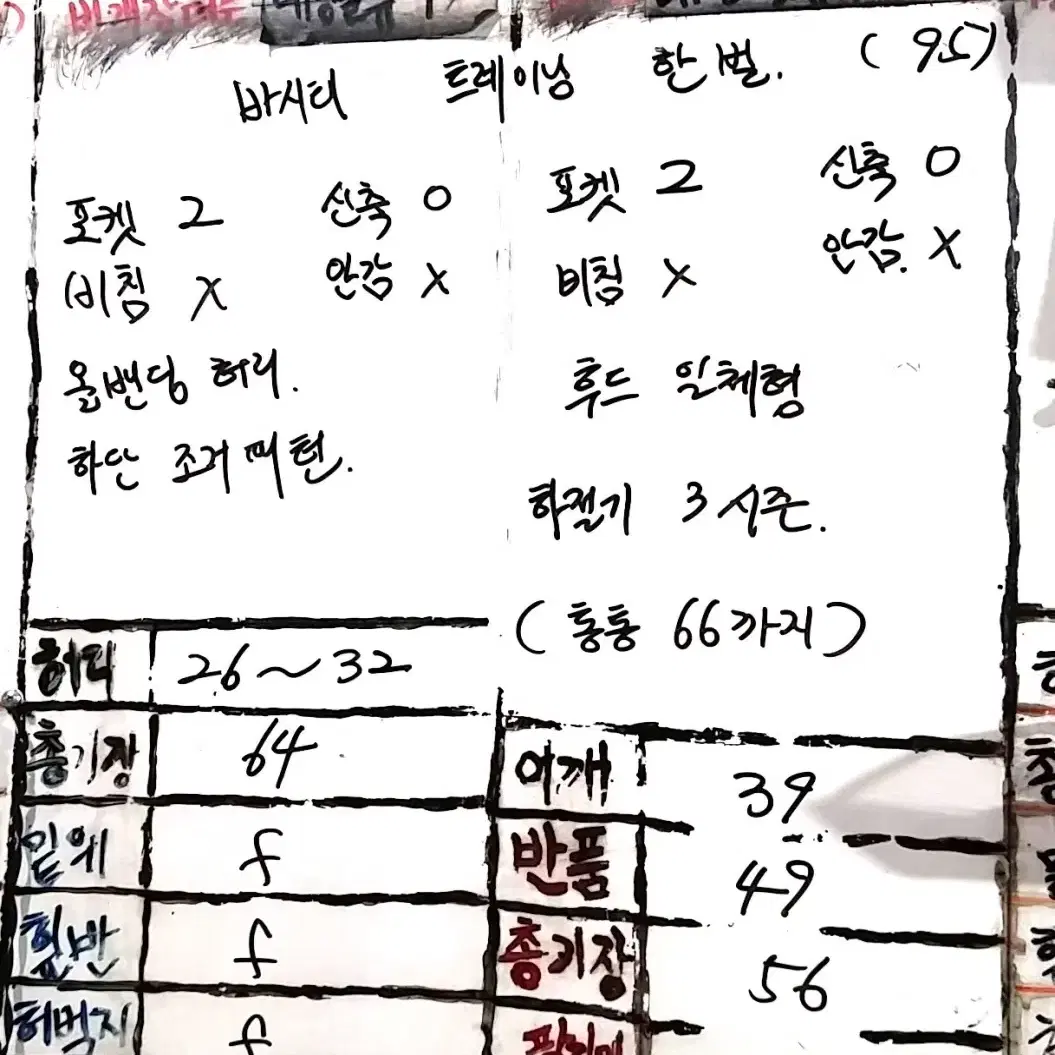 바시티 트레이닝 한벌. (95)
포켓 2 신축 0
비침 X 안감 X
올밴딩 허리.
하단 조거패턴.
포켓 2 신축 0
비침 X 안감. X
후드 일체형
하절기 3시즌.
(통통 66까지)
허리 26~32
총기장 64
밑위 f
힙반 f
허벅지 f
어깨 39
반품 49
총기장 56